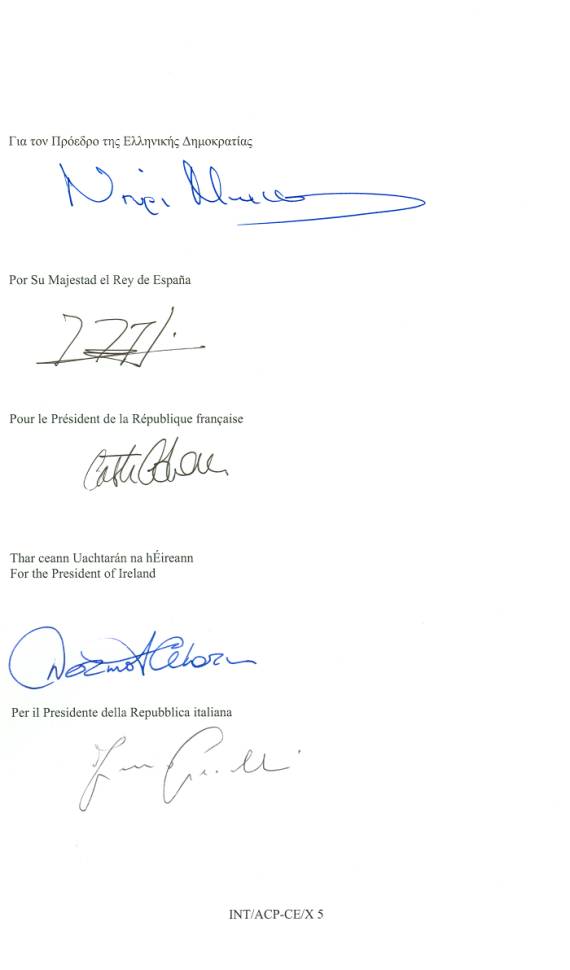 Για τον Πρόεδρο της Ελληνικής Δημοκρατίας
Por Su Majestad el Rey de España
Pour le Président de la République française
Thar ceann Uachtarán na hÉireann
For the President of Ireland
Per il Presidente della Repubblica italiana
INT/ACP-CE/X 5